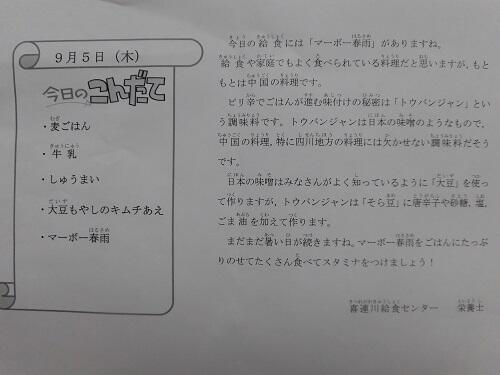 ９月５日（木）
今日のこんだて
・麦ごはん
・牛乳
・しゅうまい
・大豆もやしのキムチあえ
・マーボー春雨
今日の給食には「マーボー春雨」がありますね。
給食や家庭でもよく食べられている料理だと思いますが，もと
もとは中国の料理です。
ピリ辛でごはんが進む味付けの秘密は「トウバンジャン」とい
う調味料です。トウバンジャンは日本の味噌のようなもので，
中国の料理，特に四川地方の料理には欠かせない調味料だそう
です。
日本の味噌はみなさんがよく知っているように「大豆」を使っ
て作りますが，トウバンジャンは「そら豆」に唐辛子や砂糖，塩，
ごま油を加えて作ります。
まだまだ暑い日が続きますね。マーボー春雨をごはんにたっぷ
りのせてたくさん食べてスタミナをつけましょう！
喜連川給食センター　栄養士